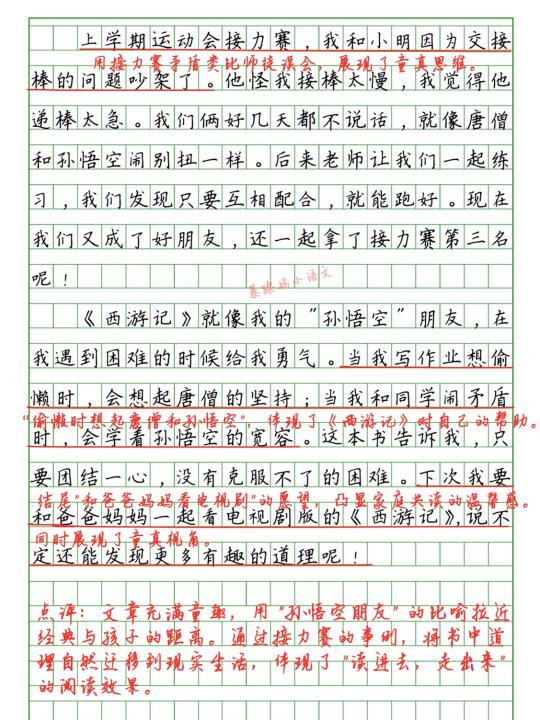 上学期运动会接力赛，我和小明因为交接
用接力赛矛盾类比师徒误会，展现了童真思维。
棒的问题吵架了。他怪我接棒太慢，我觉得他
递棒太急。我们俩好几天都不说话，就像唐僧
和孙悟空闹别扭一样。后来老师让我们一起练
习，我们发现只要互相配合，就能跑好。现在
我们又成了好朋友，还一起拿了接力赛第三名
呢！
《西游记》就像我的“孙悟空”朋友，在
我遇到困难的时候给我勇气。当我写作业想偷
懒时，会想起唐僧的坚持；当我和同学闹矛盾
“偷懒时想起唐僧和孙悟空”，体现了《西游记》对自己的帮助。
时，会学着孙悟空的宽容。这本书告诉我，只
要团结一心，没有克服不了的困难。下次我要
结尾“和爸爸妈妈看电视剧”的愿望，凸显家庭共读的温馨感。
和爸爸妈妈一起看电视剧版的《西游记》，说不
同时展现了童真视角。
定还能发现更多有趣的道理呢！
点评：文章充满童趣，用“孙悟空朋友”的比喻拉近
经典与孩子的距离。通过接力赛的事例，将书中道
理自然迁移到现实生活，体现了“读进去，走出来”
的阅读效果。